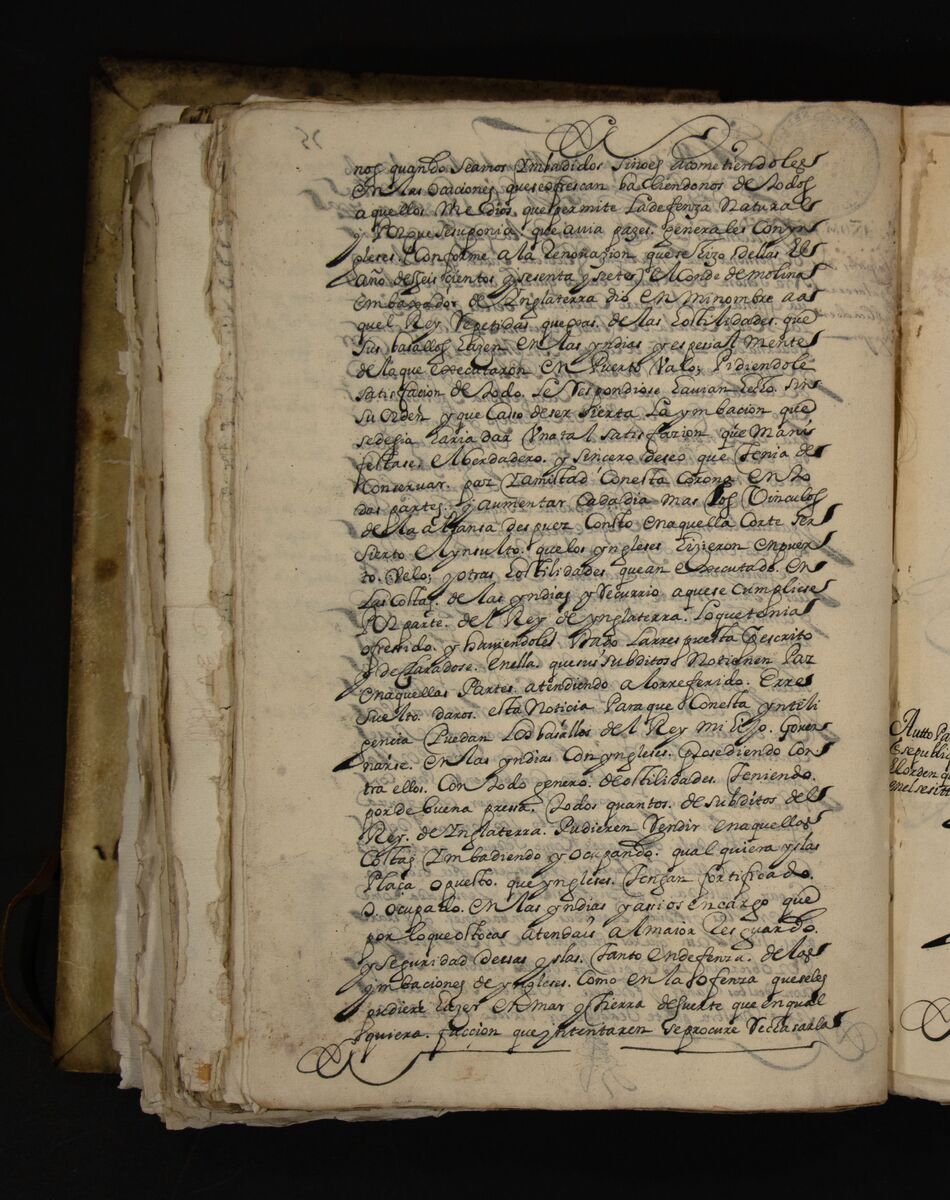 nos quando seamos Ymbadidos sinoes acometiendoles
En las ocaciones que se ofrescan baliendonos de todos
aquellos Medios que permite La defenza Natural
y Porque se suponia que auia pazes generales con yn
gleses Conforme a la Renouasion que se hizo dellas El
año de seis cientos y sesenta y siete el Conde de molina
embaxador de Ynglaterra dio En mi nombre a a
quel Rey Repetidas quexas de las hostilidades que
sus basallos hazen en las yndias y espesial mente
de lo que executaron en Puerto Velo, Pidiendole
satisfacion de todo se Respondiose hauian hecho sin
su orden y que Casso de ser sierta La ymbacion que
se desia haria dar Una tal satisfazion que Manis
festase el berdadero y sincero deseo que tenia de
Conseruar paz Y amistad Con esta Corona en to
das partes y aumentar cada dia mas los Vinculos
de la aliansa despuez Consto en aquella Corte ser
sierto el ynsulto que los yngleses hizieron en puer
to Velo, y otras hostilidades que an executado en
Las Costas de las yndias y Recurrio a que se cumpliese
Por parte del Rey de ynglaterra lo que tenia
ofresido y hauiendoles dado La rrespuesta Por escrito
y declaradose en ella que sus subditos No tienen Paz
en aquellas Partes atendiendo a lo rreferido E rre
suelto daros esta Noticia Para que Con esta ynteli
gencia Puedan Los basallos del Rey mi hijo Gouer
narse en las yndias Con yngleses Prosediendo Con
tra ellos Con todo genero de ostilidades teniendo
por de buena pressa todos quantos de subditos del
Rey de Ynglaterra Pudieren Rendir en aquellas
Costas Ymbadiendo y ocupando qual quiera yslas
Plaça o puesto que yngleses tengan fortificado
o ocupado en las yndias y assi os encargo que
por lo que os toca atendais al maior Resguardo
y Seguridad dessas yslas tanto en defenza de las
ymbaciones de yngleses Como en la ofenza que se les
pudiere hazer en mar y tierra de suerte que en qual
quiera facçion que yntentaren se procure
Autto Pa
se publi
El orden q
en el se sitt